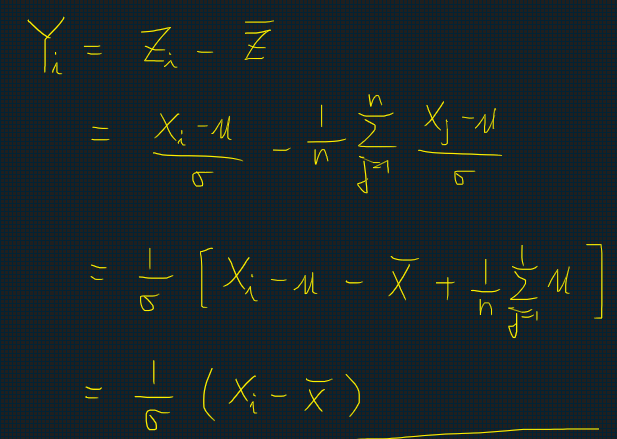 Y_i = Z_i - \overline{Z}
= \frac{X_i - μ}{σ} - \frac{1}{n} \sum_{j=1}^{n} \frac{X_j - μ}{σ}
= \frac{1}{σ} [ X_i - μ - \overline{X} + \frac{1}{n} \sum_{j=1}^{1} μ ]
= \frac{1}{σ} ( X_i - \overline{X} )